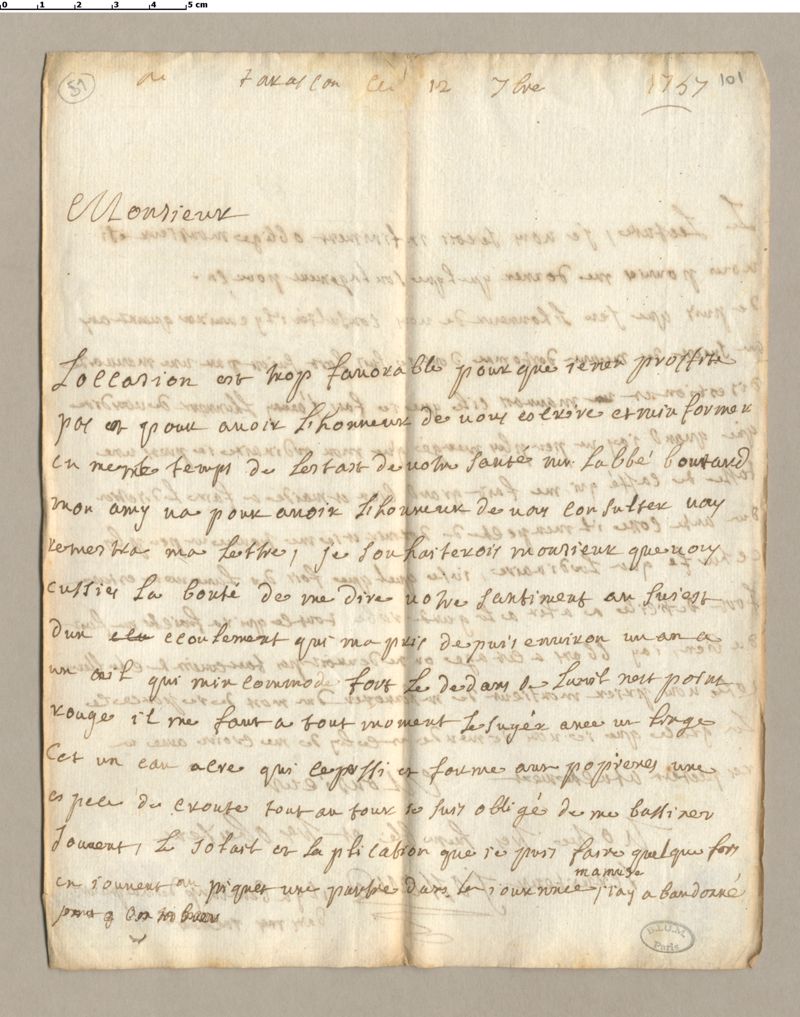 0 1 2 3 4 5 cm
51
de Tarascon Le 12 7bre 1757
101
Monsieur
Loccasion est trop favorable pour que ie nen proffite
pas et pour avoir Lhonneur de vous ecrire et minformer
en meme temps de Lestat de votre santé mr Labbé boutard
mon amy va pour avoir Lhonneur de vous consulter vous
remettra ma Lettre, je souhaiterois monsieur que vous
eussies La bonté de me dire votre santiment au suiest
dun ecoulement qui ma pris depuis environ un an a
un œil qui mincommode fort Le dedans de Lœuil nest point
rouge il me faut a tout moment Lessuyér avec un linge
Cet un eau acre qui et forme aux popieres une
espece de croute tout au tour ie suis obligé de me bassiner
souvent, Le soleil et Laplication que ie puis faire quelque fois
en iouvent ou piquet une partie dans la journnée mamuse j'ay abandonné
B.I.U.M.
Paris